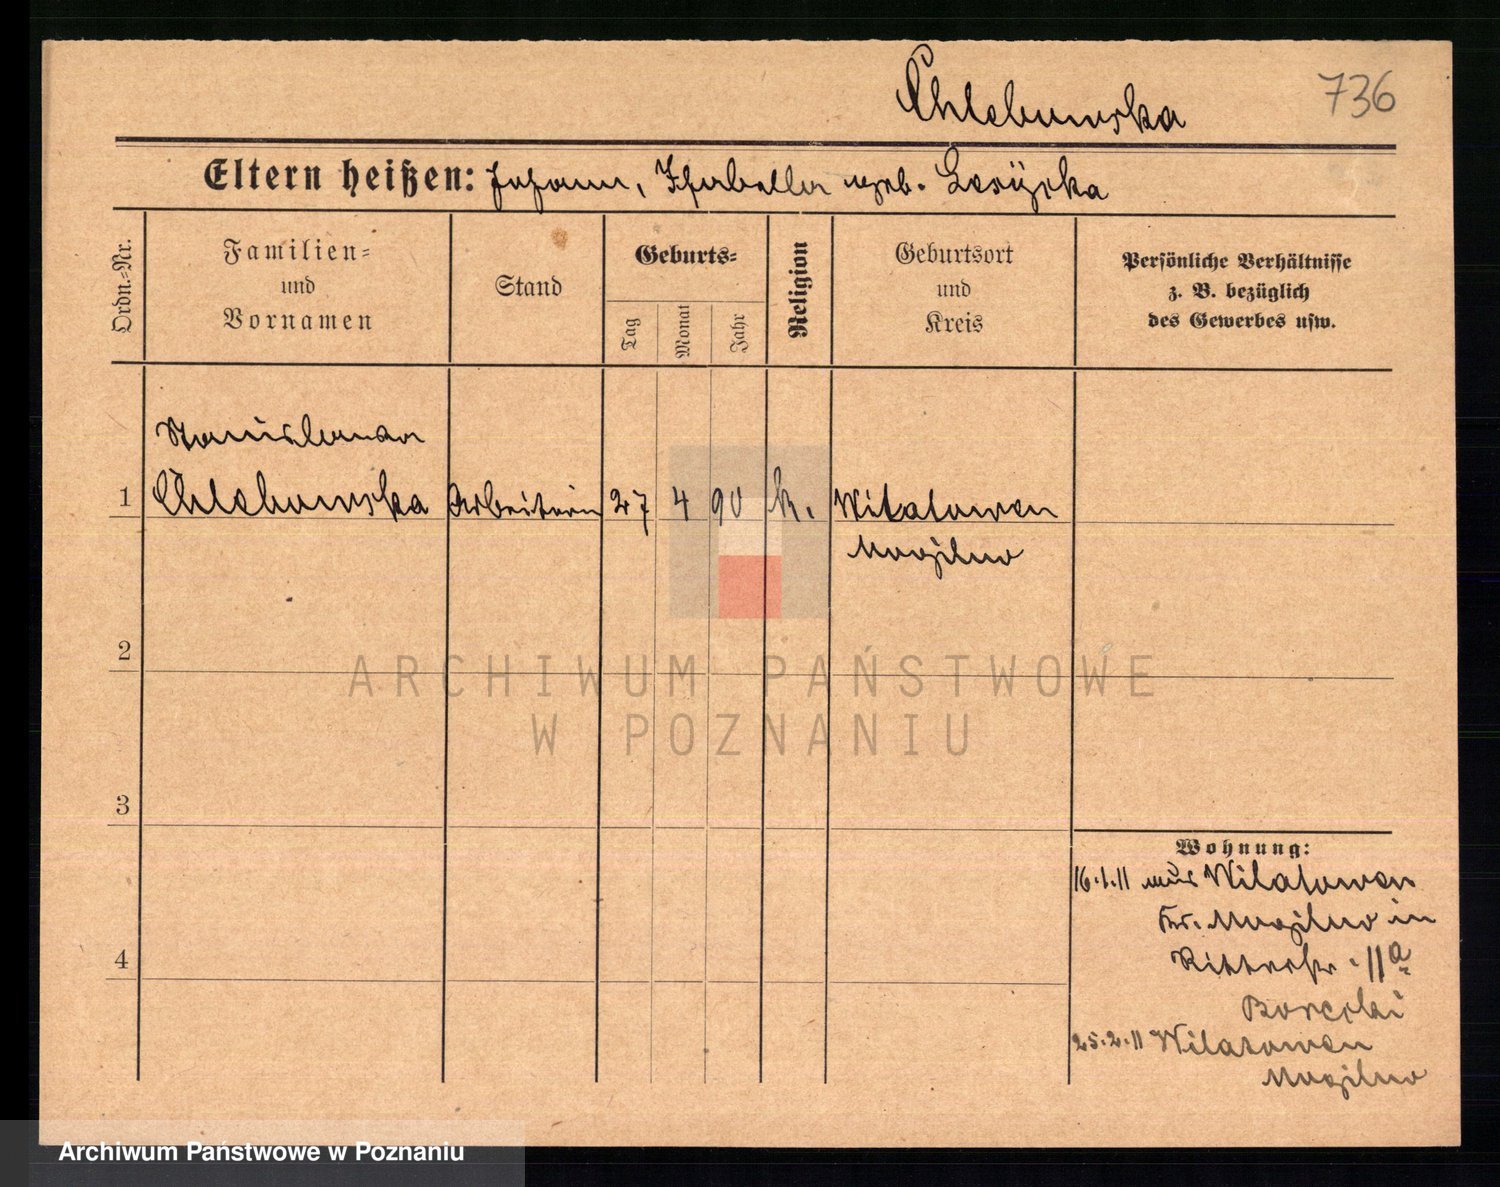 Chlebowska
736
Eltern heißen: Johann, Isabella geb.
Ordn.=Nr.
Familien=
und
Vornamen
Stand
Geburts=
Tag
Monat
Jahr
Religion
Geburtsort
und
Kreis
Persönliche Verhältnisse
z. B. bezüglich
des Gewerbes usw.
Stanislawa
1 Chlebowska Arbeiterin 27 4 90 k. Wilatowen
Mogilno
2
ARCHIWUM PAŃSTWOWE
W POZNANIU
3
Wohnung:
16.1.11 aus Wilatowen
Kr. Mogilno in
Ritterstr. 11a
4
25.2.11 Wilatowen
Mogilno
Archiwum Państwowe w Poznaniu